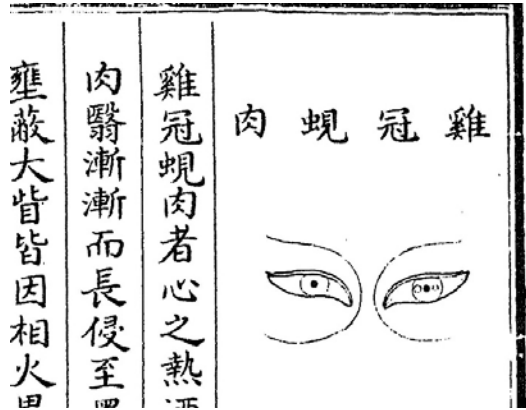 雞冠蜆肉
雞冠蜆肉者心之熱
肉翳漸漸而長侵至
壅蔽大眥皆因相火